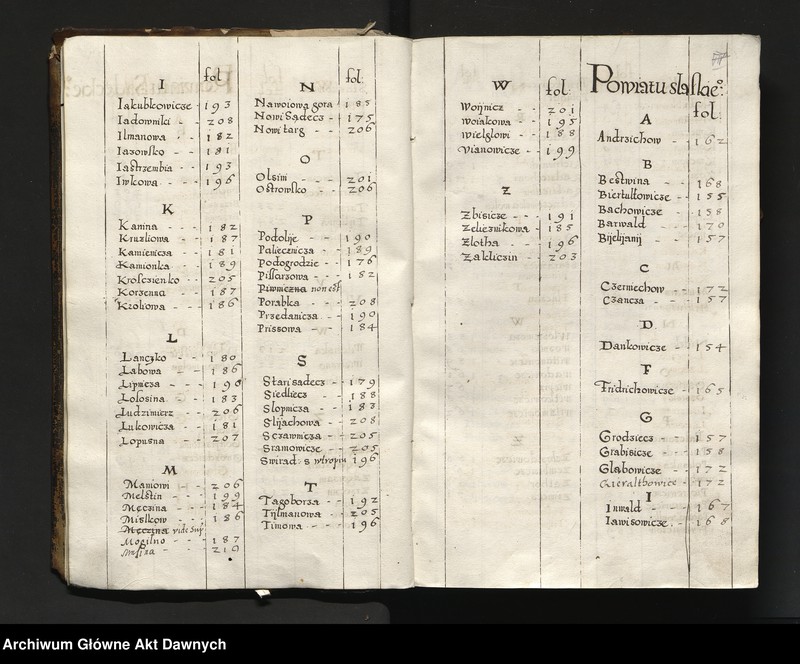 fol
I
Iakubkowicze - 193
Iadowniki - - 208
Ilmanowa - - 182
Iazowsko - - 181
Iastrzembia - - 193
Iwkowa - - - 196
K
Kanina - - - 182
Kruzlowa - - 187
Kamienicza - - 181
Kamionka - - 189
Krosczienko - - 205
Korzenna - - 187
Kzolowa - - 186
L
Lanczko - - 180
Labowa - - 186
Lipnicza - - - 190
Lososina - - 183
Ludzimierz - - 206
Lukowicza - - 181
Lopusna - - 207
M
Maniowi - - 206
Melstin - - - 199
Męcsina - - - 184
Mislkow - - - 186
Męczina vide sup
Mogilno - - - 187
- - 210
fol:
N
Nawoiowa gora 185
Nowi Sądecz - - 175
Nowi targ - - 206
O
Olsini - - - - 201
Ostrowsko - - - 206
P
Podolije - - - 190
Paliecznicza - - 189
Podogrodzie - - 176
Pissarzowa - - - 182
Piwniczna non est
Porabka - - - 208
Przedanicza - - 190
Prissowa - - - 184
S
Stari sadecz - - 179
Siedliecz - - 188
Slopnicza - - 183
Slijachowa - - 208
Sczawnicza - - 205
Sramowicze - - 205
Swirad. S wtropiu 196
T
Tagoborza - - 192
Tijlmanowa - - 205
Timowa - - - 196
W
fol:
Woijnicz - - 201
Woiakowa - - 195
Wielglowi - - 188
Vianowicze - - 199
Z
Zbisicze - - - 191
Zeliesnikowa - 185
Zlotha - - - 196
Zakliczin - - 203
Powiatu sląskie°:
fol:
A
Andrzichow - - 162
B
Bestwina - - 168
Biertultowicze - - 155
Bachowicze - - 158
Barwald - - - 170
Bijelijanij - - 157
C
Czerniechow - - 172
Czancza - - - 157
D
Dankowicze - - 154
F
Fridrichowicze - 165
G
Grodziecz - - 157
Grabiszicze - - 158
Glabowicze - - 172
Gieraltbowice - - 172
I
Inwald - - - - 167
Iawisowicze. - - 168
Archiwum Główne Akt Dawnych